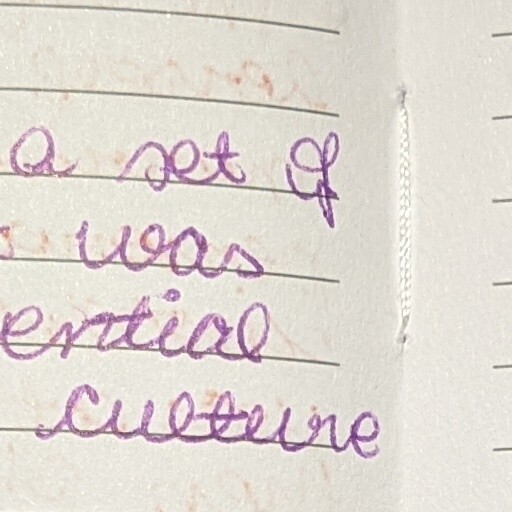 a set of
was
ential
culture